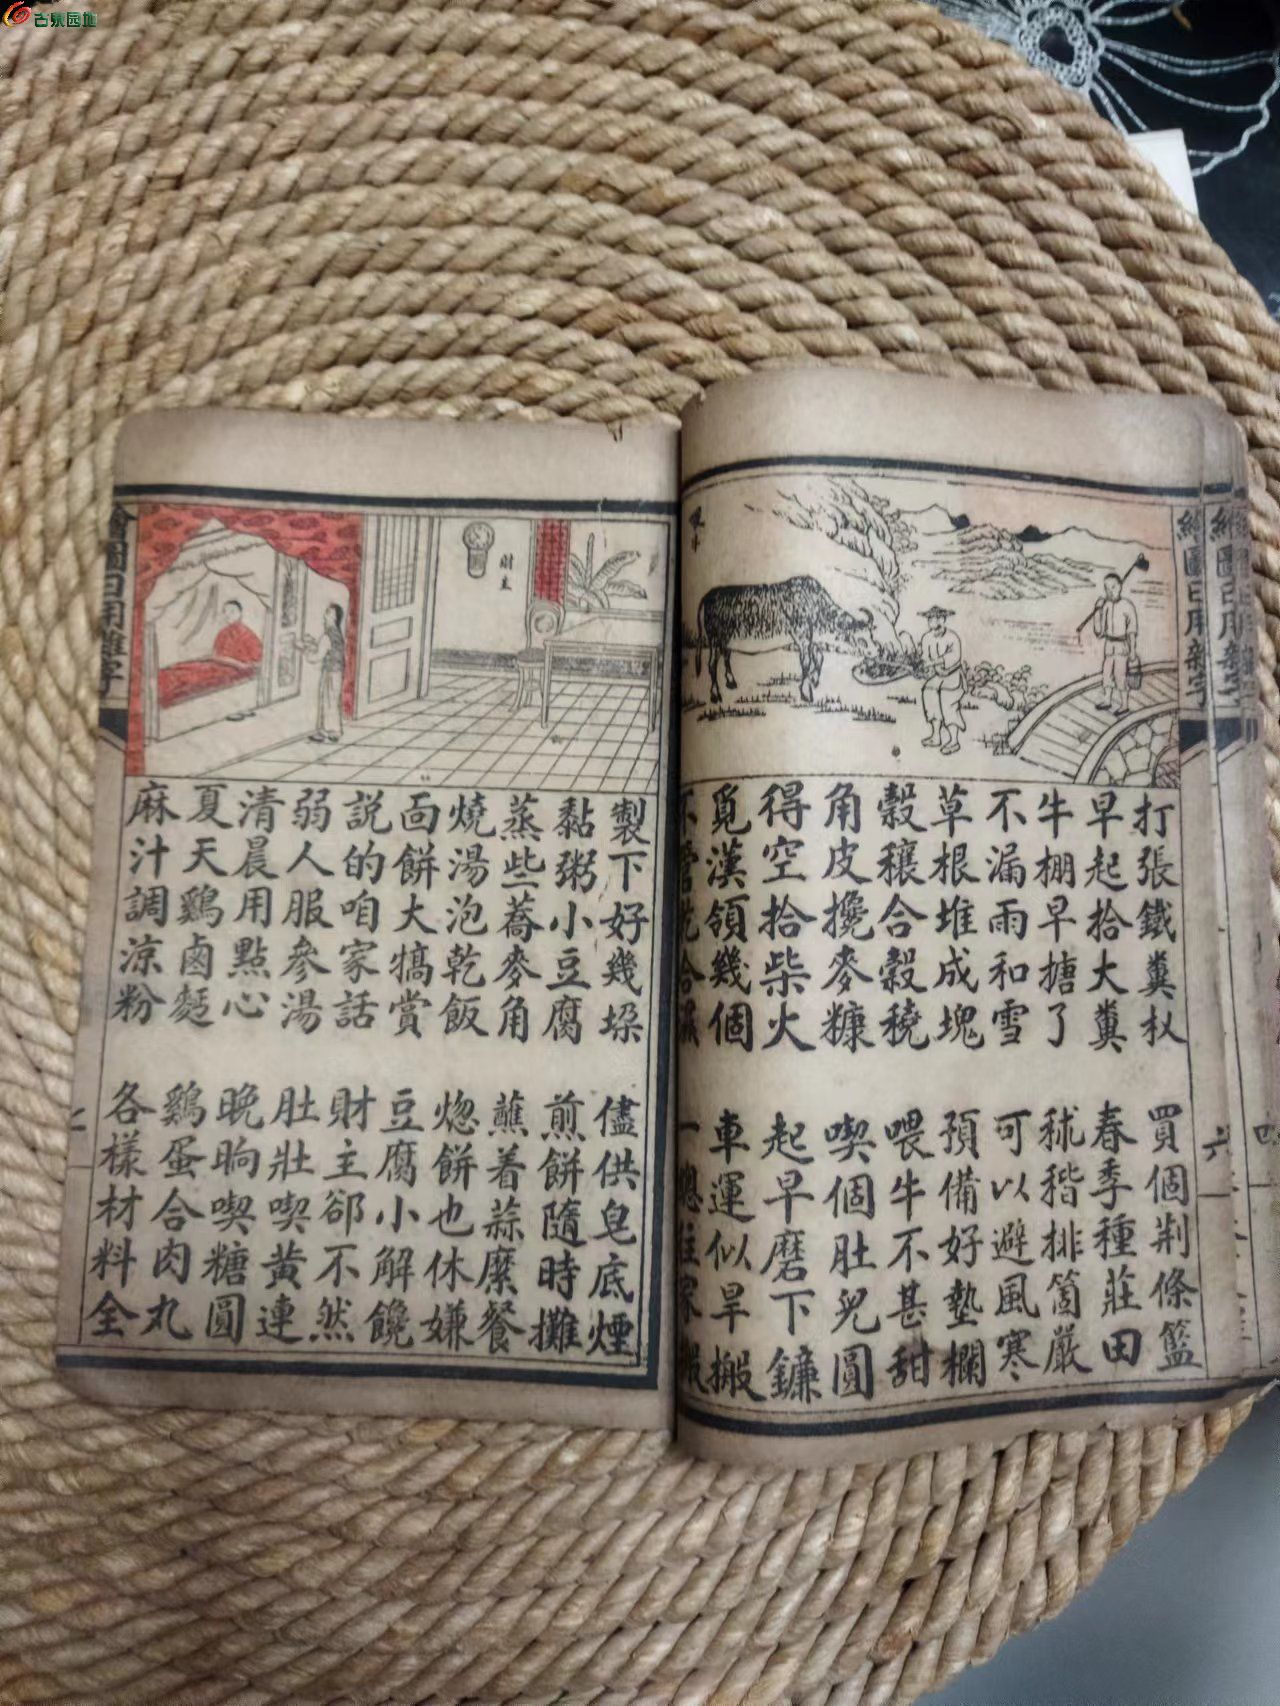 古泉园地
繪圖日用雜字
打張鐵糞杈 買個荆條籃
早起拾大糞 春季種莊田
牛棚早搪了 秫稭排箇嚴
不漏雨和雪 可以避風寒
草根堆成塊 預備好墊欄
穀穰合穀穘 喂牛不甚甜
角皮攙麥糠 喫個肚兒圓
得空拾柴火 起早磨下鐮
覓漢領幾個 車運似旱搬
不管乾合濕 一總往家搬
六
財主
製下好幾垜 儘供皂底煙
黏粥小豆腐 煎餅隨時攤
蒸些蕎麥角 蘸着蒜縻餐
燒湯泡乾飯 焧餅也休嫌
面餅大犒賞 豆腐小解饞
説的咱家話 財主郤不然
弱人服參湯 肚壯喫黃連
清晨用點心 晚晌喫糖圓
夏天鷄鹵麪 鷄蛋合肉丸
麻汁調凉粉 各樣材料全
繪圖日用雜字